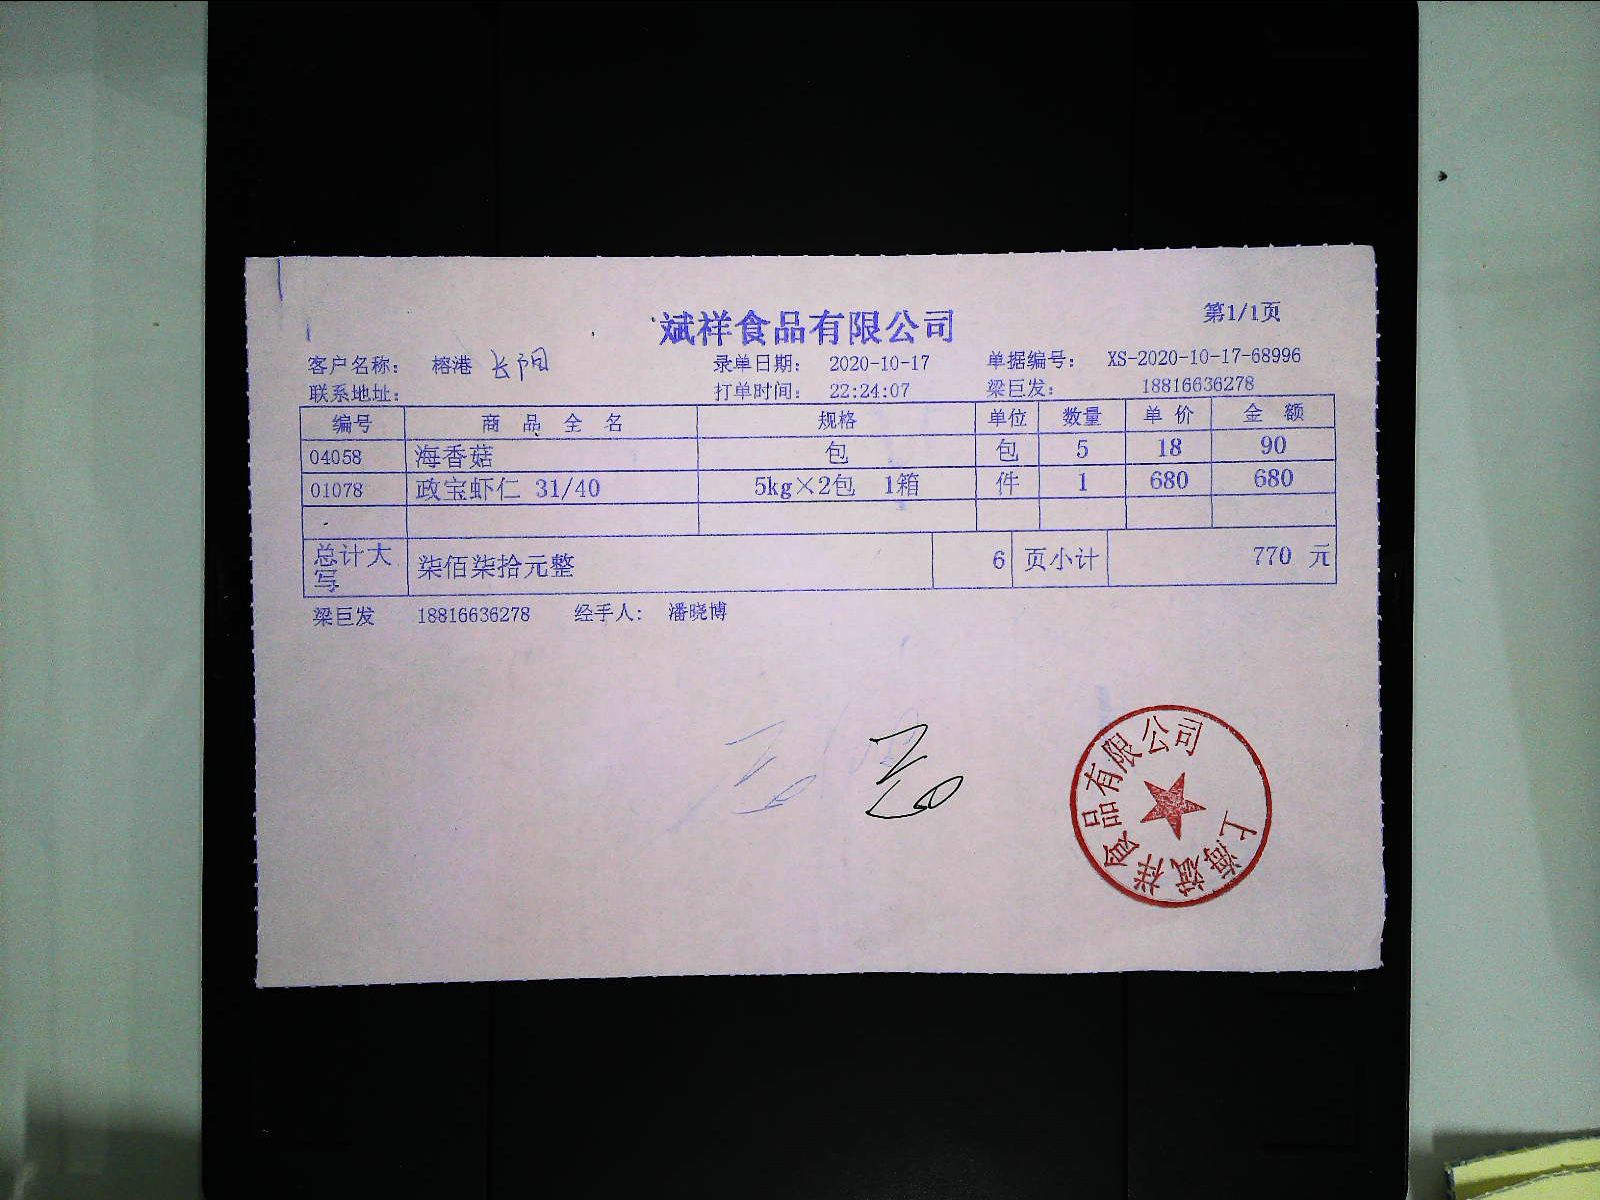 斌祥食品有限公司
第1/1页
客户名称： 榕港 长阳 录单日期： 2020-10-17 单据编号： XS-2020-10-17-68996
联系地址： 打单时间： 22:24:07 梁巨发： 18816636278
编号 商品全名 规格 单位 数量 单价 金额
04058 海香菇 包 包 5 18 90
01078 政宝虾仁 31/40 5kg×2包 1箱 件 1 680 680
总计大写 柒佰柒拾元整 6 页小计 770 元
梁巨发 18816636278 经手人： 潘晓博
上海斌祥食品有限公司